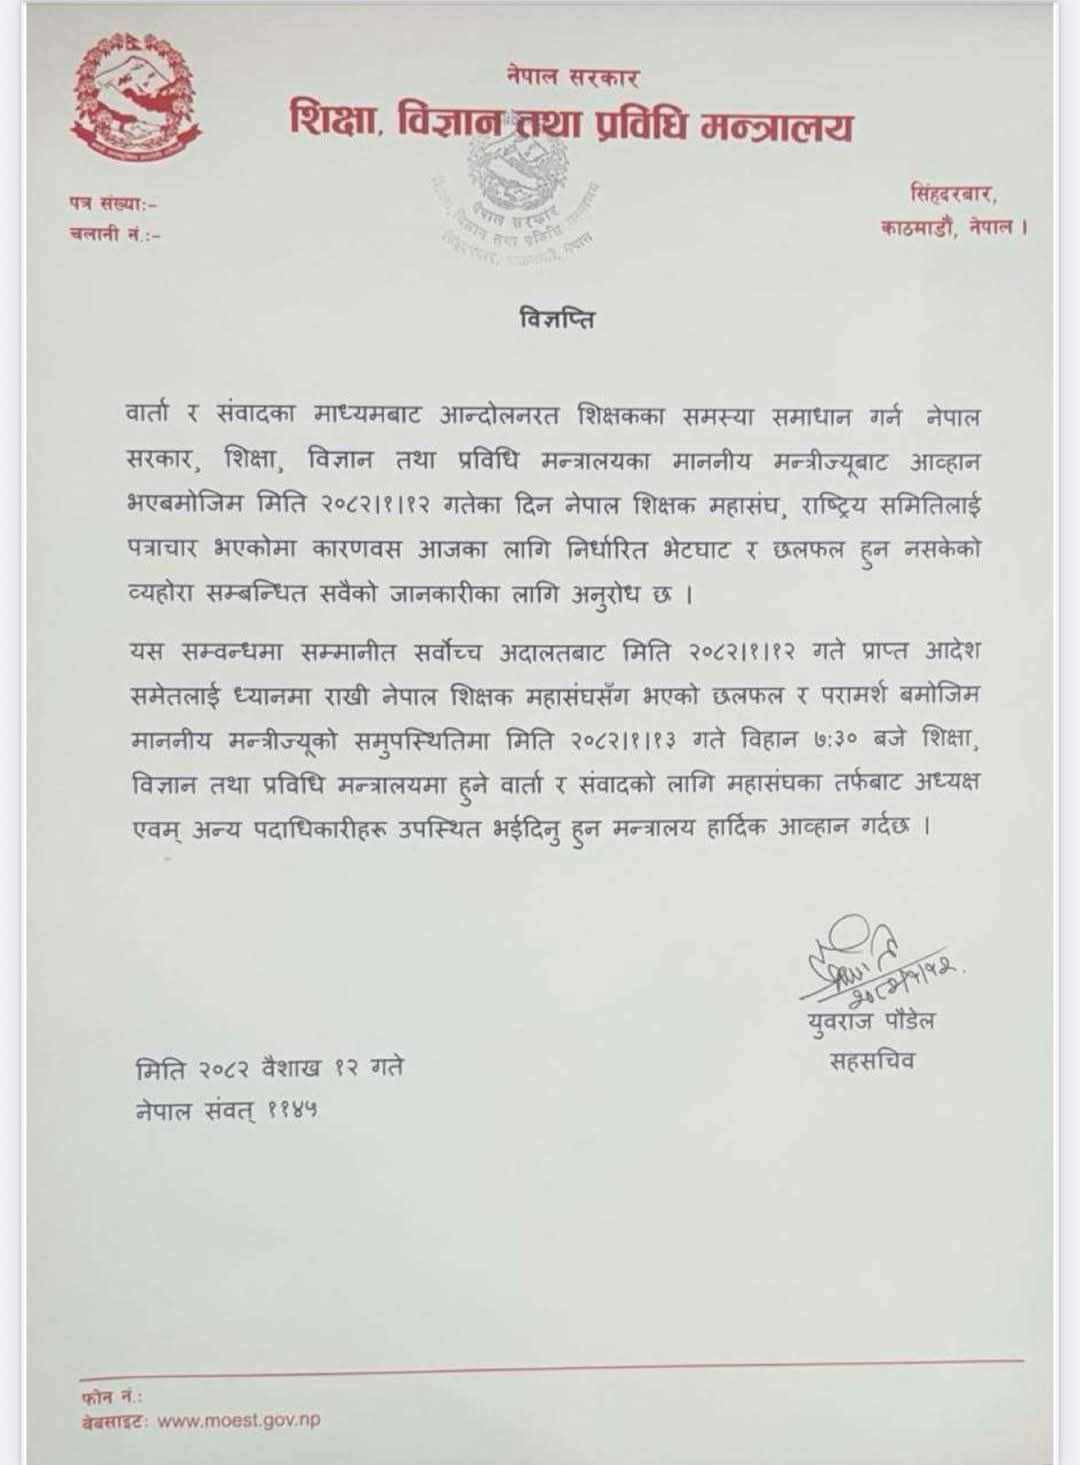 नेपाल सरकार
शिक्षा, विज्ञान तथा प्रविधि मन्त्रालय
नेपाल सरकार
पत्र संख्या:-
चलानी नं.:-
सिंहदरबार,
काठमाडौं, नेपाल ।
विज्ञप्ति
वार्ता र संवादका माध्यमबाट आन्दोलनरत शिक्षकका समस्या समाधान गर्न नेपाल
सरकार, शिक्षा, विज्ञान तथा प्रविधि मन्त्रालयका माननीय मन्त्रीज्यूबाट आव्हान
भएबमोजिम मिति २०८२।१।१२ गतेका दिन नेपाल शिक्षक महासंघ, राष्ट्रिय समितिलाई
पत्राचार भएकोमा कारणवस आजका लागि निर्धारित भेटघाट र छलफल हुन नसकेको
व्यहोरा सम्बन्धित सवैको जानकारीका लागि अनुरोध छ ।
यस सम्वन्धमा सम्मानीत सर्वोच्च अदालतबाट मिति २०८२।१।१२ गते प्राप्त आदेश
समेतलाई ध्यानमा राखी नेपाल शिक्षक महासंघसँग भएको छलफल र परामर्श बमोजिम
माननीय मन्त्रीज्यूको समुपस्थितिमा मिति २०८२।१।१३ गते विहान ७:३० बजे शिक्षा,
विज्ञान तथा प्रविधि मन्त्रालयमा हुने वार्ता र संवादको लागि महासंघका तर्फबाट अध्यक्ष
एवम् अन्य पदाधिकारीहरू उपस्थित भईदिनु हुन मन्त्रालय हार्दिक आव्हान गर्दछ ।
२०८२।१।१२
युवराज पौडेल
सहसचिव
मिति २०८२ वैशाख १२ गते
नेपाल संवत् ११४५
फोन नं.:
वेबसाइट: www.moest.gov.np